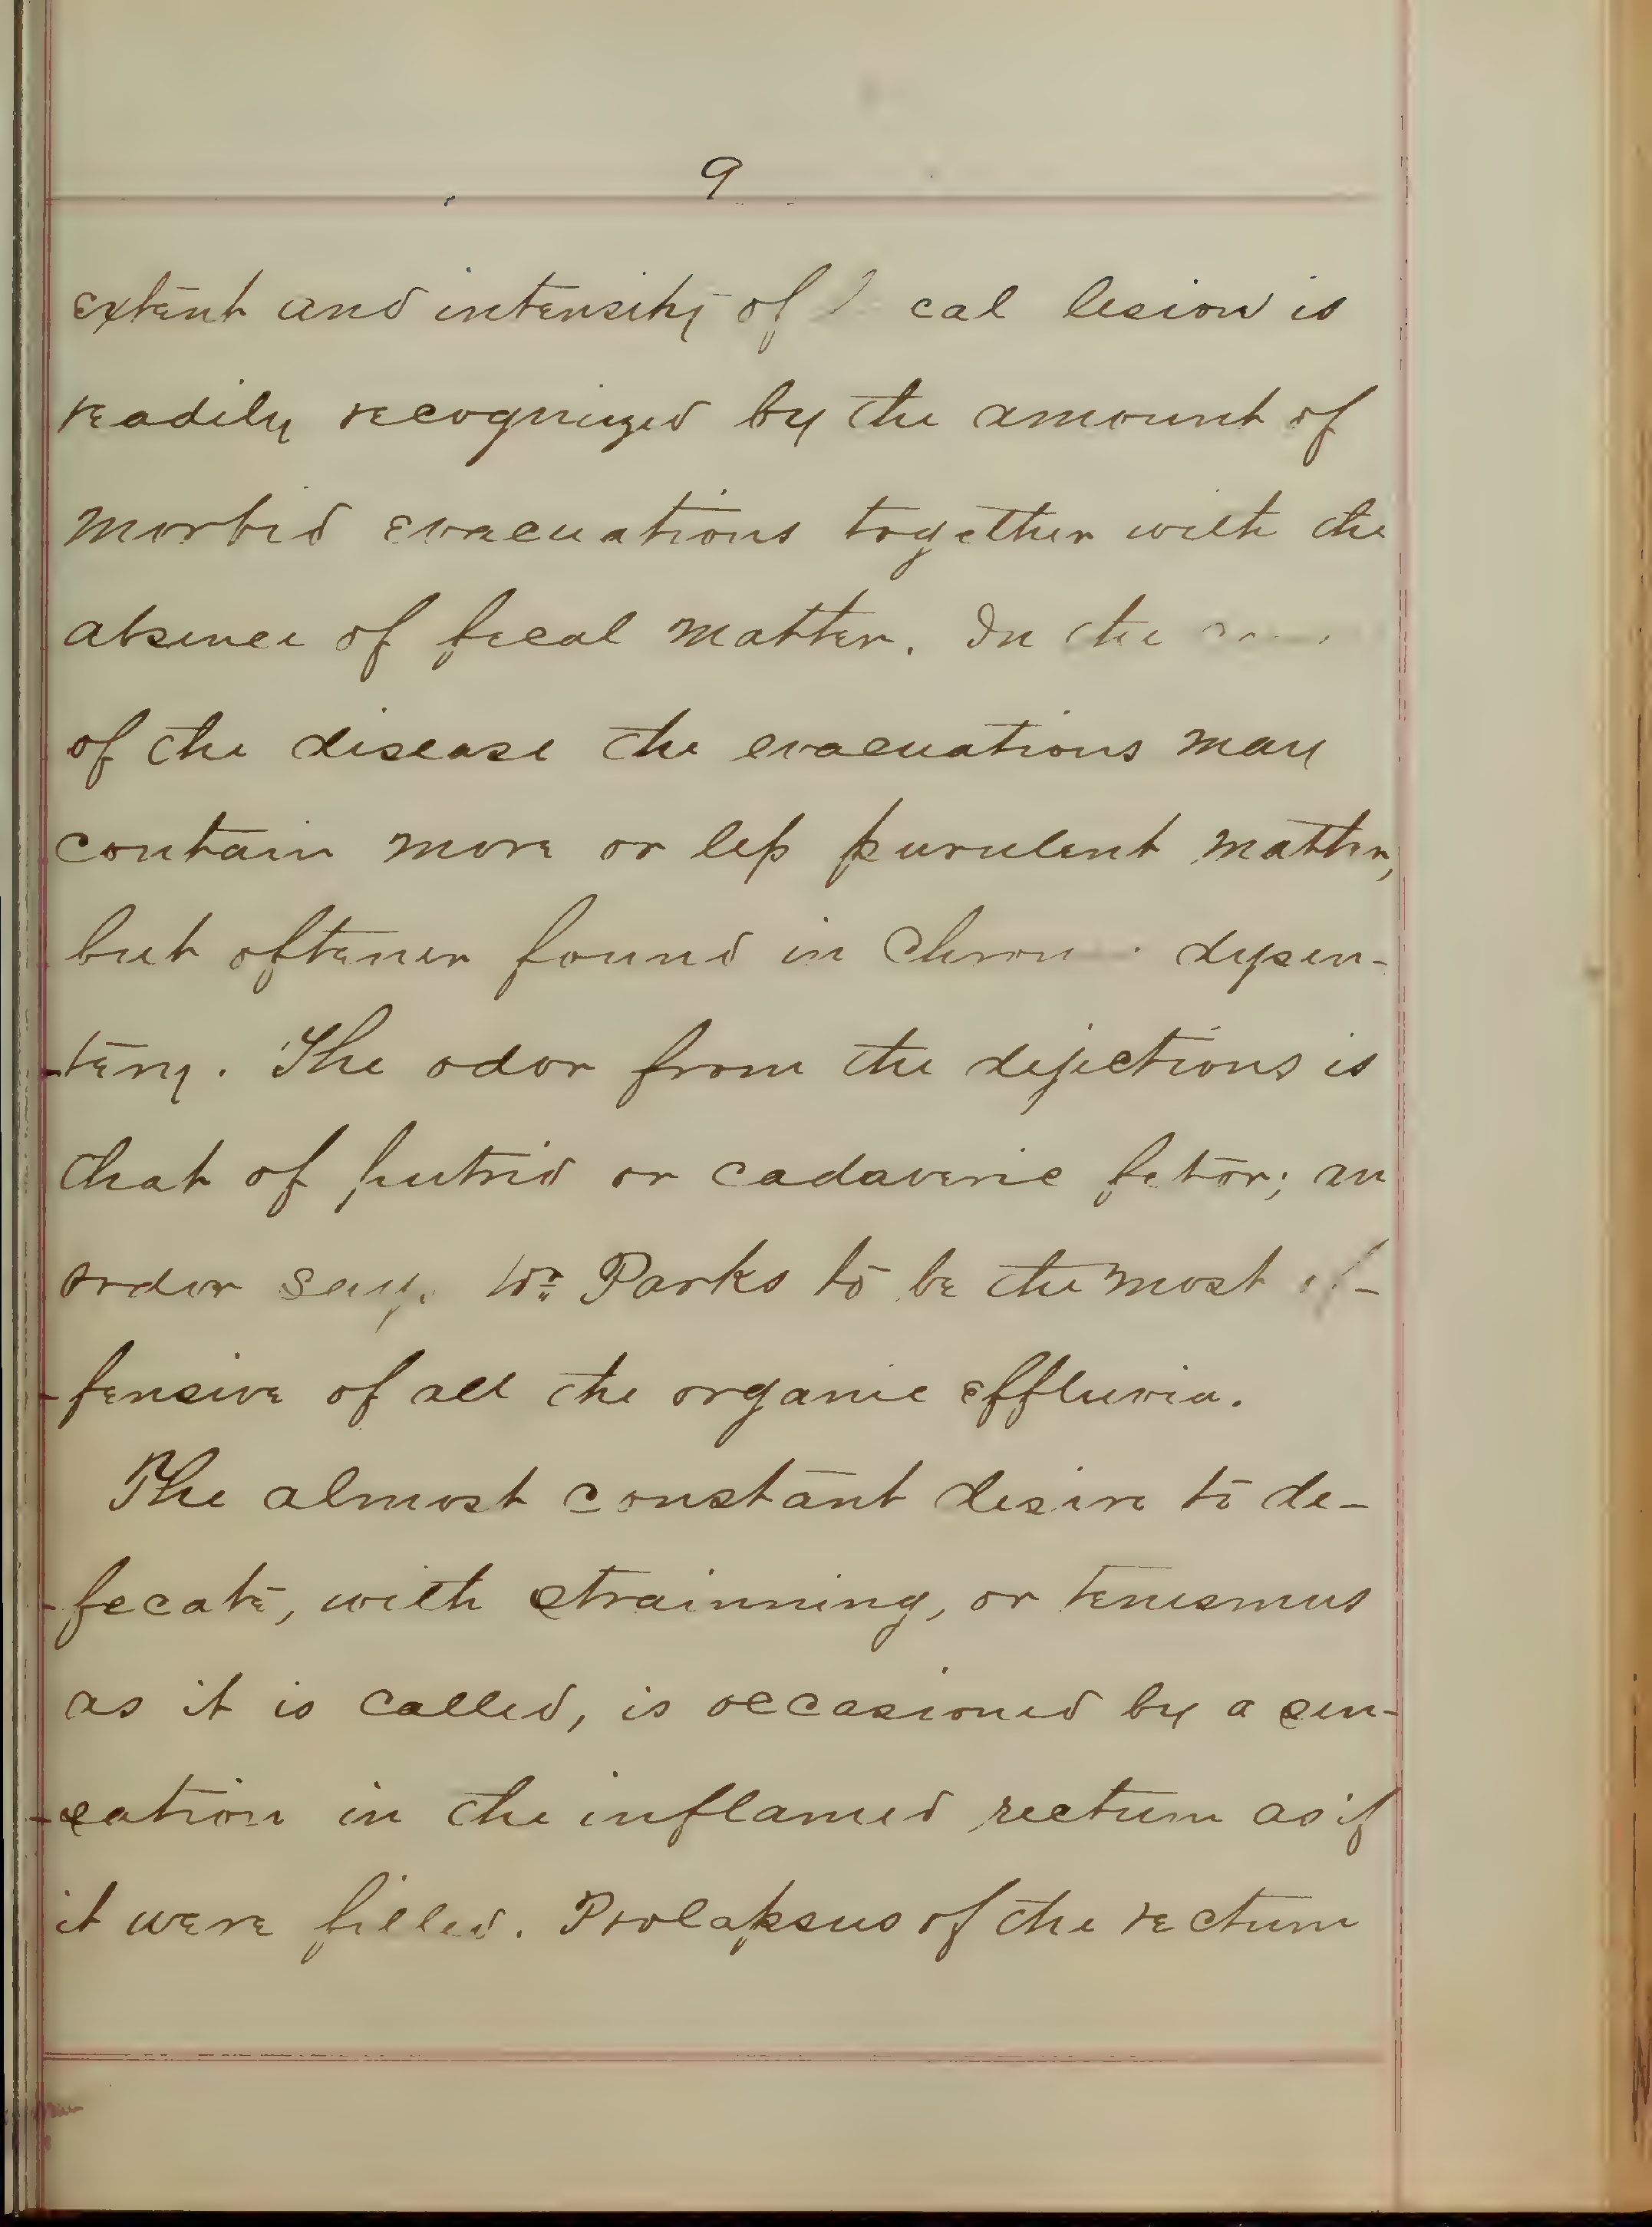 9
extent and intensity of cal lesion is
readily recognized by the amount of
morbid evacuations together with the
absence of fecal matter. In the
of the disease the evacuations may
contain more or less purulent matter,
but oftener found in Chron dysen-
-tery. The odor from the dejections is
that of putrid or cadaveric fetor; an
ordor says Dr. Parks to be the most of-
-fensive of all the organic effluvia.
The almost constant desire to de-
-fecate, with strainning, or tenesmus
as it is called, is occasioned by a sen-
-sation in the inflamed rectum as if
it were filled. Prolapsus of the rectum